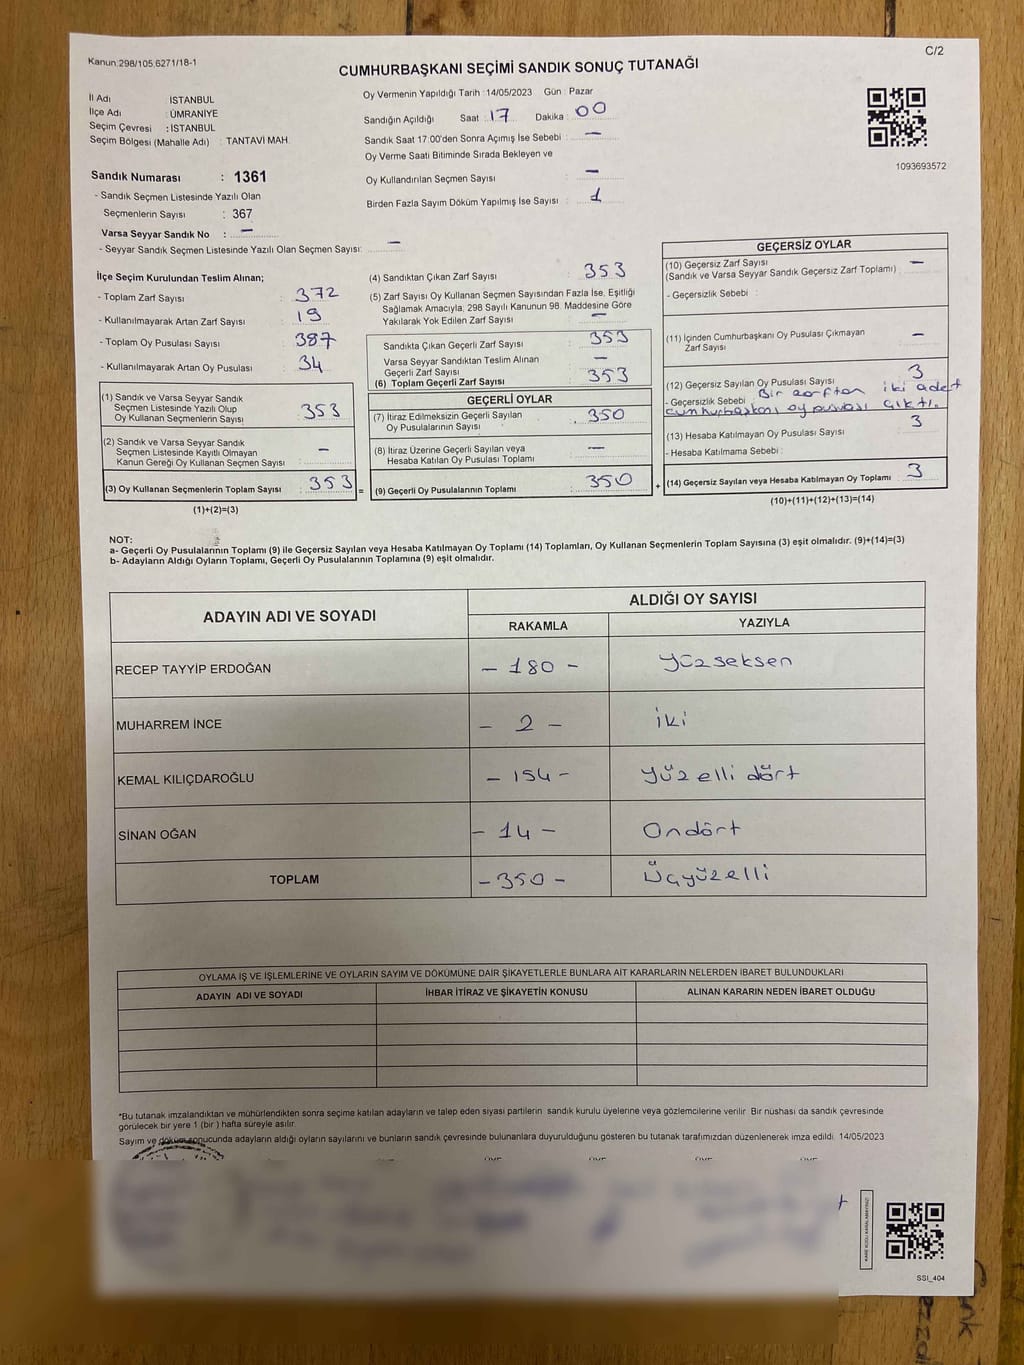 Kanun:298/105,6271/18-1
C/2
CUMHURBAŞKANI SEÇİMİ SANDIK SONUÇ TUTANAĞI
İl Adı : İSTANBUL
İlçe Adı : ÜMRANİYE
Seçim Çevresi : İSTANBUL
Seçim Bölgesi (Mahalle Adı) : TANTAVİ MAH.
Sandık Numarası : 1361
- Sandık Seçmen Listesinde Yazılı Olan
Seçmenlerin Sayısı : 367
Varsa Seyyar Sandık No : -
- Seyyar Sandık Seçmen Listesinde Yazılı Olan Seçmen Sayısı: -
Oy Vermenin Yapıldığı Tarih :14/05/2023 Gün : Pazar
Sandığın Açıldığı Saat : 17 Dakika : 00
Sandık Saat 17:00'den Sonra Açımış İse Sebebi : -
Oy Verme Saati Bitiminde Sırada Bekleyen ve
Oy Kullandırılan Seçmen Sayısı : -
Birden Fazla Sayım Döküm Yapılmış İse Sayısı : 1
1093693572
İlçe Seçim Kurulundan Teslim Alınan;
- Toplam Zarf Sayısı : 372
- Kullanılmayarak Artan Zarf Sayısı : 19
- Toplam Oy Pusulası Sayısı : 387
- Kullanılmayarak Artan Oy Pusulası : 34
(1) Sandık ve Varsa Seyyar Sandık
Seçmen Listesinde Yazılı Olup
Oy Kullanan Seçmenlerin Sayısı : 353
(2) Sandık ve Varsa Seyyar Sandık
Seçmen Listesinde Kayıtlı Olmayan
Kanun Gereği Oy Kullanan Seçmen Sayısı : -
(3) Oy Kullanan Seçmenlerin Toplam Sayısı : 353
(1)+(2)=(3)
=
(4) Sandıktan Çıkan Zarf Sayısı : 353
(5) Zarf Sayısı Oy Kullanan Seçmen Sayısından Fazla İse, Eşitliği
Sağlamak Amacıyla, 298 Sayılı Kanunun 98. Maddesine Göre
Yakılarak Yok Edilen Zarf Sayısı : -
Sandıkta Çıkan Geçerli Zarf Sayısı : 353
Varsa Seyyar Sandıktan Teslim Alınan
Geçerli Zarf Sayısı : -
(6) Toplam Geçerli Zarf Sayısı : 353
GEÇERLİ OYLAR
(7) İtiraz Edilmeksizin Geçerli Sayılan
Oy Pusulalarının Sayısı : 350
(8) İtiraz Üzerine Geçerli Sayılan veya
Hesaba Katılan Oy Pusulası Toplamı : -
(9) Geçerli Oy Pusulalarının Toplamı : 350
+
GEÇERSİZ OYLAR
(10) Geçersiz Zarf Sayısı : -
(Sandık ve Varsa Seyyar Sandık Geçersiz Zarf Toplamı)
- Geçersizlik Sebebi :
(11) İçinden Cumhurbaşkanı Oy Pusulası Çıkmayan
Zarf Sayısı : -
(12) Geçersiz Sayılan Oy Pusulası Sayısı : 3
- Geçersizlik Sebebi : Bir zarftan iki adet
cumhurbaşkanı oy pusulası çıktı.
(13) Hesaba Katılmayan Oy Pusulası Sayısı : 3
- Hesaba Katılmama Sebebi :
(14) Geçersiz Sayılan veya Hesaba Katılmayan Oy Toplamı : 3
(10)+(11)+(12)+(13)=(14)
NOT:
a- Geçerli Oy Pusulalarının Toplamı (9) ile Geçersiz Sayılan veya Hesaba Katılmayan Oy Toplamı (14) Toplamları, Oy Kullanan Seçmenlerin Toplam Sayısına (3) eşit olmalıdır. (9)+(14)=(3)
b- Adayların Aldığı Oyların Toplamı, Geçerli Oy Pusulalarının Toplamına (9) eşit olmalıdır.
ADAYIN ADI VE SOYADI
ALDIĞI OY SAYISI
RAKAMLA YAZIYLA
RECEP TAYYİP ERDOĞAN - 180 - Yüzseksen
MUHARREM İNCE - 2 - iki
KEMAL KILIÇDAROĞLU - 154 - Yüz elli dört
SİNAN OĞAN - 14 - Ondört
TOPLAM - 350 - Üçyüzelli
OYLAMA İŞ VE İŞLEMLERİNE VE OYLARIN SAYIM VE DÖKÜMÜNE DAİR ŞİKAYETLERLE BUNLARA AİT KARARLARIN NELERDEN İBARET BULUNDUKLARI
ADAYIN ADI VE SOYADI İHBAR İTİRAZ VE ŞİKAYETİN KONUSU ALINAN KARARIN NEDEN İBARET OLDUĞU
*Bu tutanak imzalandıktan ve mühürlendikten sonra seçime katılan adayların ve talep eden siyasi partilerin sandık kurulu üyelerine veya gözlemcilerine verilir. Bir nüshası da sandık çevresinde
görülecek bir yere 1 (bir ) hafta süreyle asılır.
Sayım ve döküm sonucunda adayların aldığı oyların sayılarını ve bunların sandık çevresinde bulunanlara duyurulduğunu gösteren bu tutanak tarafımızdan düzenlenerek imza edildi. 14/05/2023
SSI_404